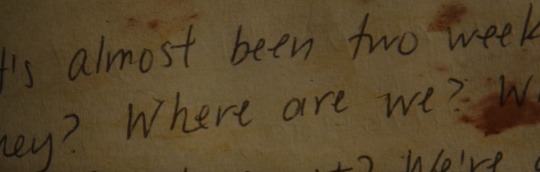 t's almost been two week
hey? Where are we? W
We're